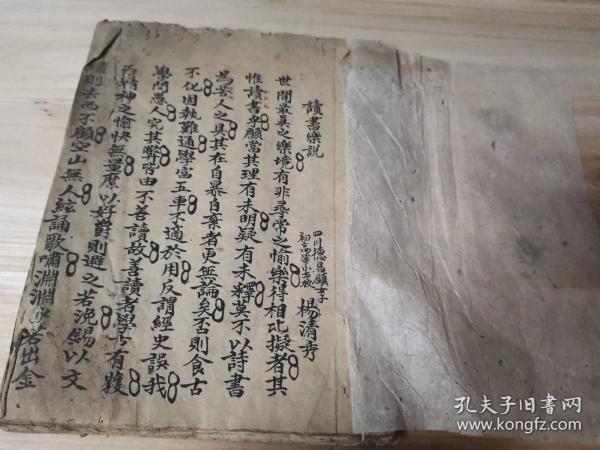 讀書樂說
四川德昌鎮李
初高等小學校
楊清秀
世間最真之樂境有非尋常之愉樂得相比擬者其
惟讀書乎顧當其理有未明疑有未釋莫不以詩書
為苦人之具其在自暴自棄者更無論矣否則食古
不化因執難通學富五車不適於用反謂經史誤我
學問愚人究其弊皆由不善讀故善讀者學有獲
精神之愉快無量縻以好爵則避之若浼錫以文
則去而不顧空山無人絃誦歌嘯淵淵乎若出金
孔夫子旧书网
www.kongfz.com